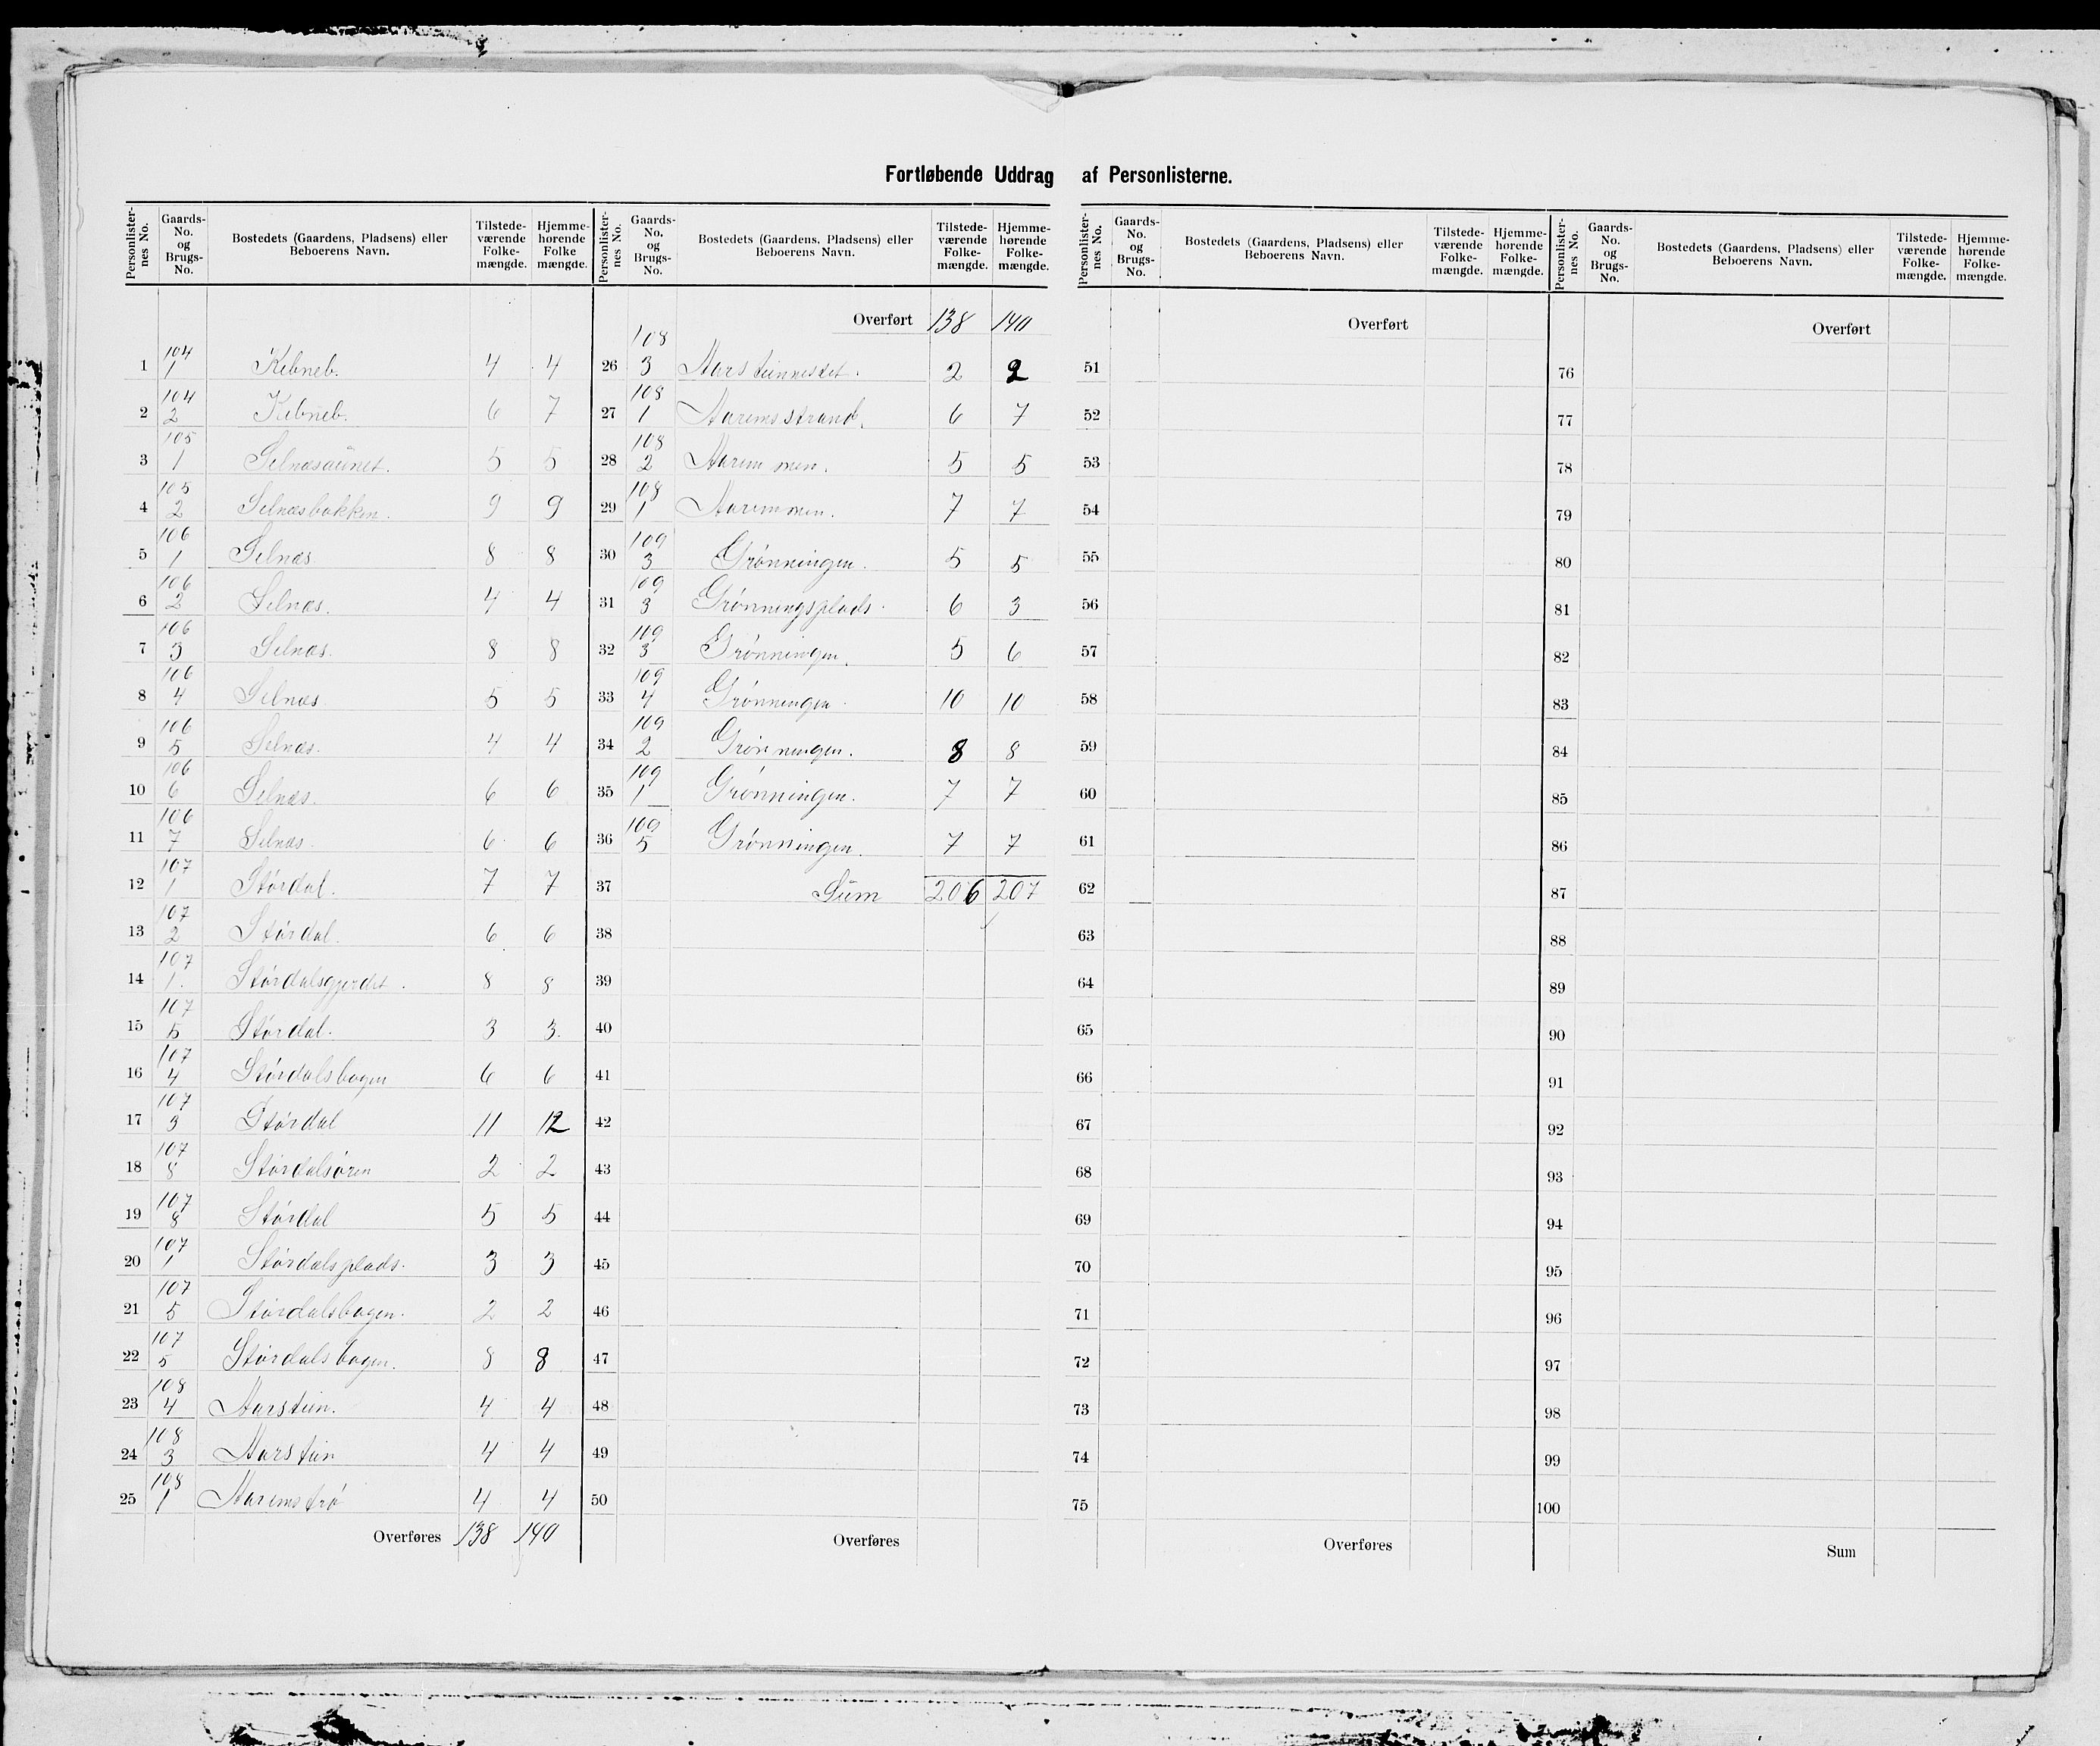 Fortløbende Uddrag af Personlisterne.
Personlister-nes No. | Gaards-No. og Brugs-No. | Bostedets (Gaardens, Pladsens) eller Beboerens Navn. | Tilstede-værende Folke-mængde. | Hjemme-hørende Folke mængde.
1 | 104 1 | Kebneb. | 4 | 4
2 | 104 2 | Kebneb. | 6 | 7
3 | 105 1 | Selnæsaunet. | 5 | 5
4 | 105 2 | Selnæsbakken. | 9 | 9
5 | 106 1 | Selnæs | 8 | 8
6 | 106 2 | Selnæs. | 4 | 4
7 | 106 3 | Selnæs. | 8 | 8
8 | 106 4 | Selnæs | 5 | 5
9 | 106 5 | Selnæs. | 4 | 4
10 | 106 6 | Selnæs. | 6 | 6
11 | 106 7 | Selnæs. | 6 | 6
12 | 107 1 | Størdal. | 7 | 7
13 | 107 2 | Størdal. | 6 | 6
14 | 107 1. | Størdalsgjerdet. | 8 | 8
15 | 107 5 | Størdal. | 3 | 3.
16 | 107 4 | Størdalsbogen | 6 | 6
17 | 107 3 | Størdal | 11 | 12
18 | 107 8 | Størdalsøren | 2 | 2
19 | 107 8 | Størdal | 5 | 5
20 | 107 1 | Størdalsplads. | 3 | 3
21 | 107 5 | Størdalsbogen. | 2 | 2
22 | 107 5 | Størdalsbogen. | 8 | 8
23 | 108 4 | Aarstun. | 4 | 4
24 | 108 3 | Aarstun | 4 | 4
25 | 108 1 | Aaremstrø | 4 | 4
Overføres | 138 | 140
Personlister-nes No. | Gaards-No. og Brugs-No. | Bostedets (Gaardens, Pladsens) eller Beboerens Navn. | Tilstede-værende Folke-mængde. | Hjemme-hørende Folke-mængde.
Overført | 138 | 140
26 | 108 3 | | 2 | 2
27 | 108 1 | Aaremsstrand. | 6 | 7
28 | 108 2 | Aaremmen. | 5 | 5
29 | 108 1 | Aaremmen. | 7 | 7
30 | 109 3 | Grønningen. | 5 | 5
31 | 109 3 | Grønningsplads. | 6 | 3
32 | 109 3 | Grønningen. | 5 | 6
33 | 109 4 | Grønningen. | 10 | 10
34 | 109 2 | Grønningen. | 8 | 8
35 | 109 1 | Grønningen. | 7 | 7
36 | 109 5 | Grønningen. | 7 | 7
37 | Sum | 206 | 207
38
39
40
41
42
43
44
45
46
47
48
49
50
Overføres
Personlister-nes No. | Gaards-No. og Brugs-No. | Bostedets (Gaardens, Pladsens) eller Beboerens Navn. | Tilstede-værende Folke-mængde. | Hjemme-hørende Folke-mængde.
Overført
51
52
53
54
55
56
57
58
59
60
61
62
63
64
65
66
67
68
69
70
71
72
73
74
75
Overføres
Personlister-nes No. | Gaards-No. og Brugs-No. | Bostedets (Gaardens, Pladsens) eller Beboerens Navn. | Tilstede-værende Folke-mængde. | Hjemme-hørende Folke-mængde.
Overført
76
77
78
79
80
81
82
83
84
85
86
87
88
89
90
91
92
93
94
95
96
97
98
99
100
Sum